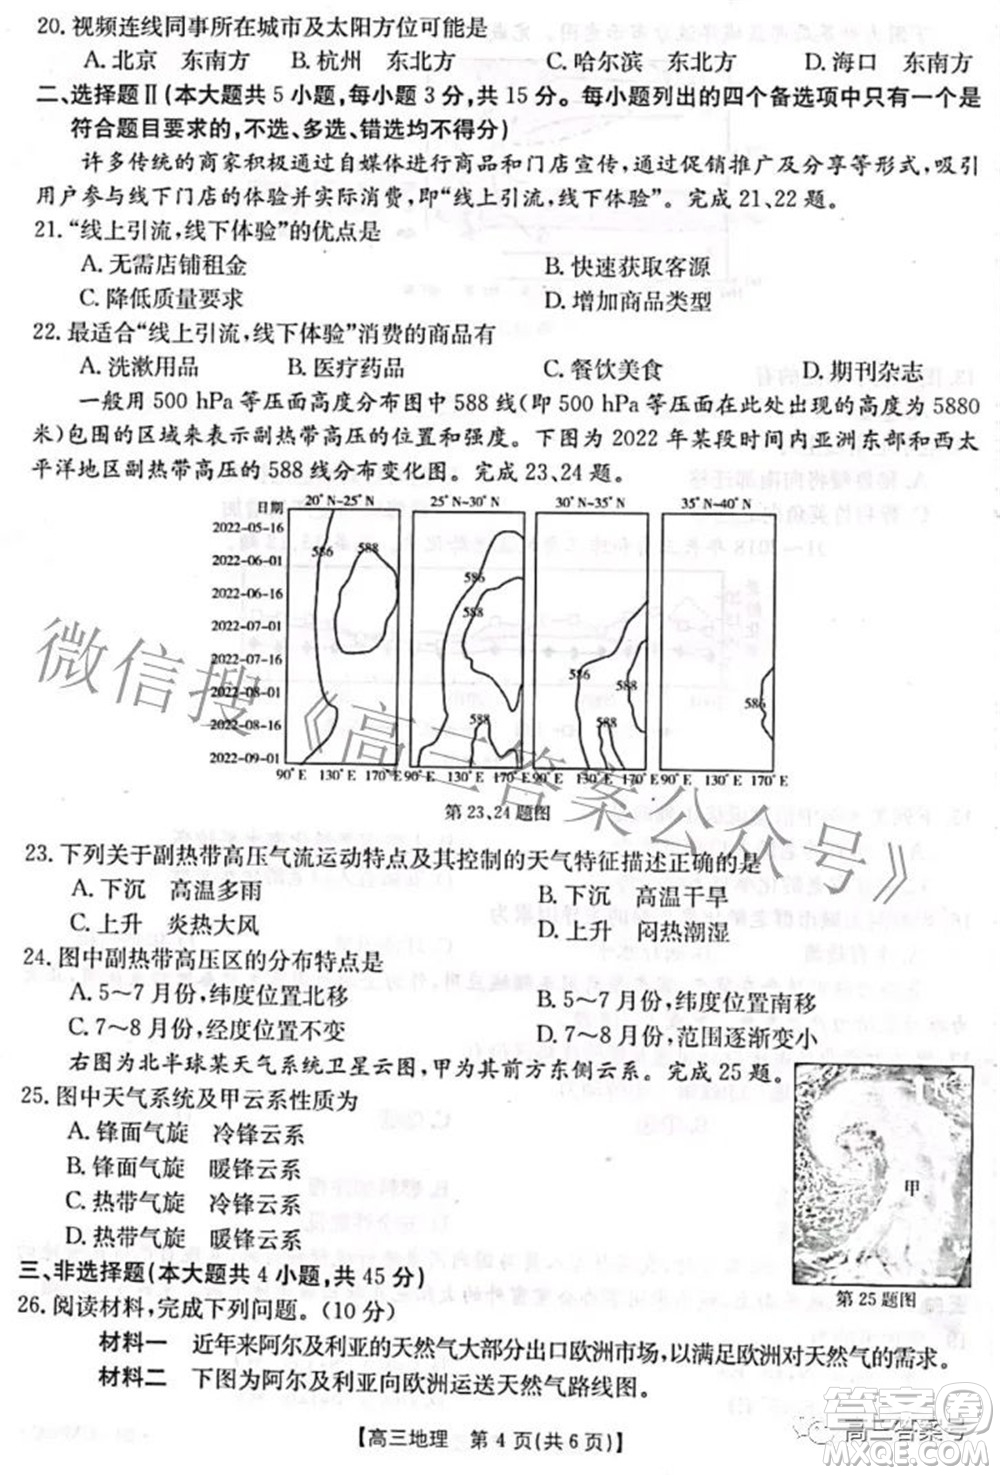 20.视频连线同事所在城市及太阳方位可能是
A.北京　东南方　B.杭州　东北方　C.哈尔滨　东北方　D.海口　东南方
二、选择题Ⅱ(本大题共5小题,每小题3分,共15分。每小题列出的四个备选项中只有一个是
符合题目要求的,不选、多选、错选均不得分)
许多传统的商家积极通过自媒体进行商品和门店宣传,通过促销推广及分享等形式,吸引
用户参与线下门店的体验并实际消费,即“线上引流,线下体验”。完成21、22题。
21.“线上引流,线下体验”的优点是
A.无需店铺租金　B.快速获取客源
C.降低质量要求　D.增加商品类型
22.最适合“线上引流,线下体验”消费的商品有
A.洗漱用品　B.医疗药品　C.餐饮美食　D.期刊杂志
一般用500 hPa等压面高度分布图中588线(即500 hPa等压面在此处出现的高度为5880
米)包围的区域来表示副热带高压的位置和强度。下图为2022年某段时间内亚洲东部和西太
平洋地区副热带高压的588线分布变化图。完成23、24题。
日期　20°N-25°N　25°N-30°N　30°N-35°N　35°N-40°N
2022-05-16
2022-06-01
2022-06-16
2022-07-01
2022-07-16
2022-08-01
2022-08-16
2022-09-01
586　588　586　588　588　586　588　588　586
90°E　130°E　170°E　90°E　130°E　170°E　90°E　130°E　170°E　90°E　130°E　170°E
第23、24题图
23.下列关于副热带高压气流运动特点及其控制的天气特征描述正确的是
A.下沉　高温多雨　B.下沉　高温干旱
C.上升　炎热大风　D.上升　闷热潮湿
24.图中副热带高压区的分布特点是
A.5~7月份,纬度位置北移　B.5~7月份,纬度位置南移
C.7~8月份,经度位置不变　D.7~8月份,范围逐渐变小
右图为北半球某天气系统卫星云图,甲为其前方东侧云系。完成25题。
25.图中天气系统及甲云系性质为
A.锋面气旋　冷锋云系
B.锋面气旋　暖锋云系
C.热带气旋　冷锋云系
D.热带气旋　暖锋云系
甲
第25题图
三、非选择题(本大题共4小题,共45分)
26.阅读材料,完成下列问题。(10分)
材料一　近年来阿尔及利亚的天然气大部分出口欧洲市场,以满足欧洲对天然气的需求。
材料二　下图为阿尔及利亚向欧洲运送天然气路线图。
【高三地理　第4页(共6页)】
微信搜《高三答案公众号》
高三答案号
答案圈
MXQE.COM